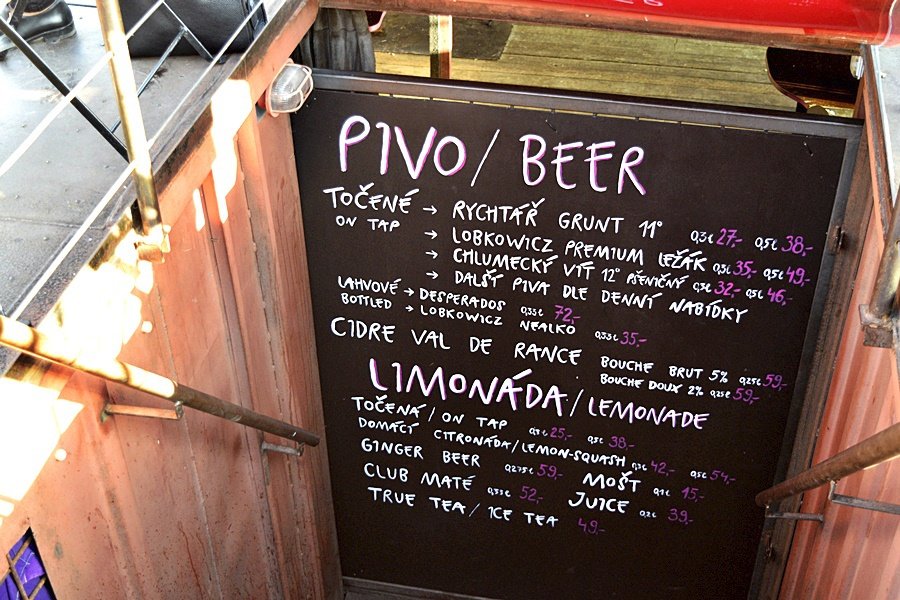 PIVO / BEER
TOČENÉ → RYCHTÁŘ GRUNT 11° 0,3ℓ 27,- 0,5ℓ 38,-
ON TAP → LOBKOWICZ PREMIUM LEŽÁK 0,3ℓ 35,- 0,5ℓ 49,-
→ CHLUMECKÝ VÍT 12° PŠENIČNÝ 0,3ℓ 32,- 0,5ℓ 46,-
→ DALŠÍ PIVA DLE DENNÍ NABÍDKY
LAHVOVÉ → DESPERADOS 0,33ℓ 72,-
BOTTLED → LOBKOWICZ NEALKO 0,33ℓ 35,-
CIDRE VAL DE RANCE BOUCHE BRUT 5% 0,25ℓ 59,-
BOUCHE DOUX 2% 0,25ℓ 59,-
LIMONÁDA / LEMONADE
TOČENÁ / ON TAP 0,3ℓ 25,- 0,5ℓ 38,-
DOMÁCÍ CITRONÁDA / LEMON-SQUASH 0,3ℓ 42,- 0,5ℓ 54,-
GINGER BEER 0,275ℓ 59,- MOŠT 0,1ℓ 15,-
CLUB MATÉ 0,33ℓ 52,- JUICE 0,2ℓ 39,-
TRUE TEA / ICE TEA 49,-